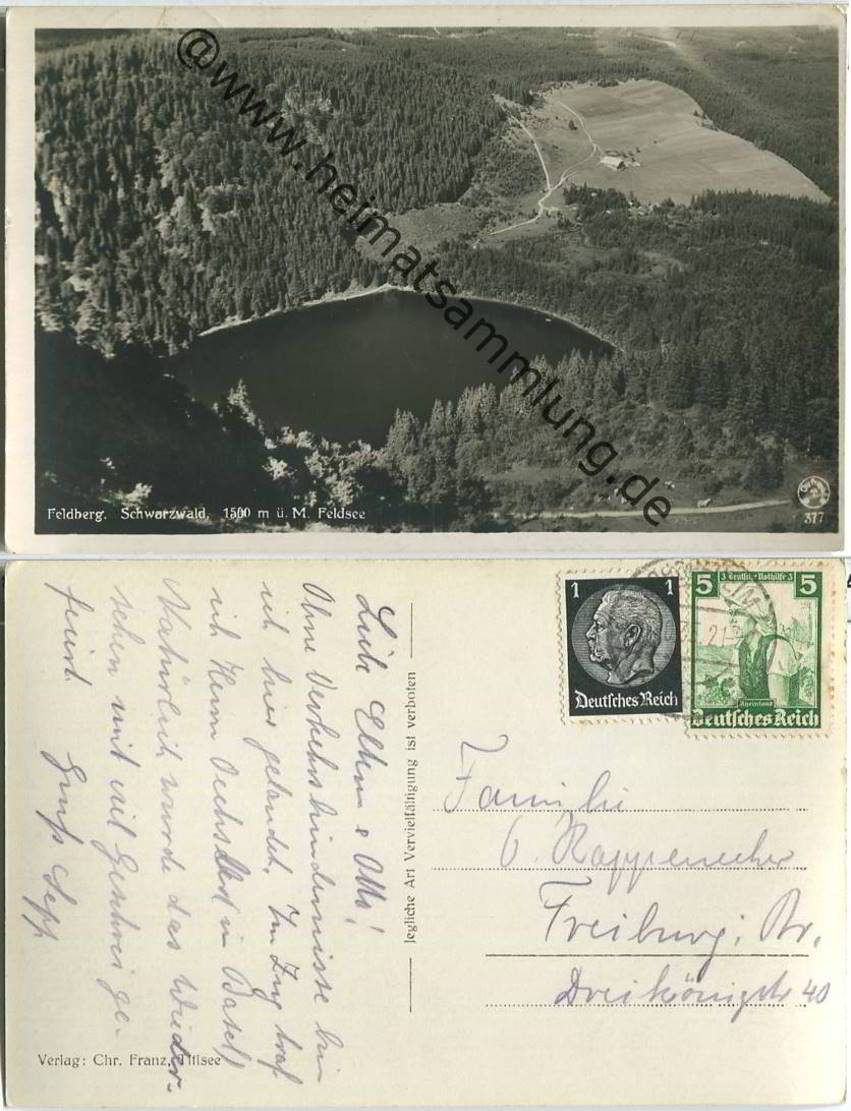 @www.heimatsammlung.de
Feldberg. Schwarzwald. 1500 m ü. M. Feldsee
377
1 1
Deutsches Reich
5 3 Deutsche Nothilfe 3 5
Rheinland
Deutsches Reich
Liebe Eltern & Otto!
Ohne Verkehrshindernisse bin
ich hier gelandet. Im Zug traf
ich Herrn Oechs in Basel!
Natürlich wurde das Wieder-
sehen mit viel Geschrei ge-
feiert.
Gruss Sepp
Jegliche Art Vervielfältigung ist verboten
Familie
Rappenecker
Freiburg i. Br.
Dreikönigstr 40
Verlag: Chr. Franz, Titisee